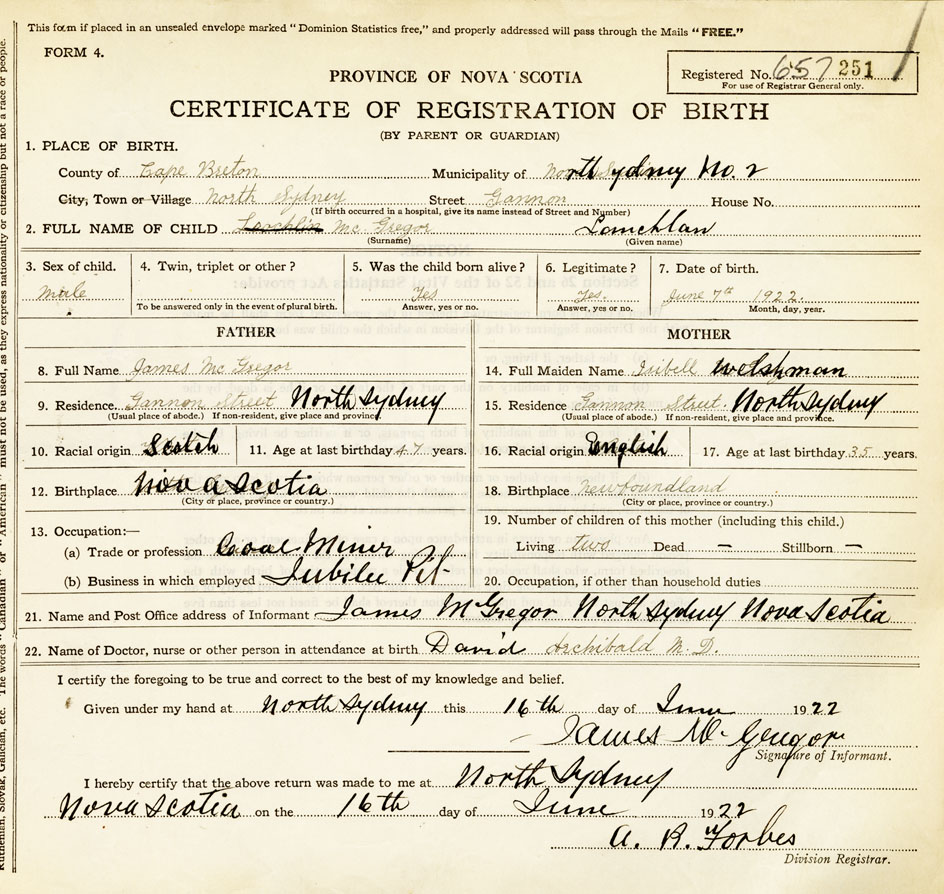 This form if placed in an unsealed envelope marked "Dominion Statistics free," and properly addressed will pass through the Mails "FREE."
FORM 4.
Registered No. 657 251
For use of Registrar General only.
PROVINCE OF NOVA SCOTIA
CERTIFICATE OF REGISTRATION OF BIRTH
(BY PARENT OR GUARDIAN)
1. PLACE OF BIRTH.
County of Cape Breton Municipality of North Sydney No. 2
City, Town or Village North Sydney Street Gannon House No.
(If birth occurred in a hospital, give its name instead of Street and Number)
2. FULL NAME OF CHILD Mc Gregor Lauchlan
(Surname) (Given name)
3. Sex of child. 4. Twin, triplet or other? 5. Was the child born alive? 6. Legitimate? 7. Date of birth.
Male Yes Yes. June 7th 1922
To be answered only in the event of plural birth. Answer, yes or no. Answer, yes or no. Month, day, year.
FATHER MOTHER
8. Full Name James Mc Gregor 14. Full Maiden Name Isibell Welshman
9. Residence Gannon Street North Sydney 15. Residence Gannon Street North Sydney
(Usual place of abode.) If non-resident, give place and province. (Usual place of abode.) If non-resident, give place and province.
10. Racial origin Scotch 11. Age at last birthday 47 years. 16. Racial origin English 17. Age at last birthday 35 years.
12. Birthplace Nova Scotia 18. Birthplace Newfoundland
(City or place, province or country.) (City or place, province or country.)
13. Occupation:— 19. Number of children of this mother (including this child.)
(a) Trade or profession Coal Miner Living two Dead — Stillborn —
(b) Business in which employed Jubilee Pit 20. Occupation, if other than household duties
21. Name and Post Office address of Informant James McGregor North Sydney Nova Scotia
22. Name of Doctor, nurse or other person in attendance at birth David Archibald M. D.
I certify the foregoing to be true and correct to the best of my knowledge and belief.
Given under my hand at North Sydney this 16th day of June 1922
James McGregor
Signature of Informant.
I hereby certify that the above return was made to me at North Sydney
Nova Scotia on the 16th day of June 1922
A. R. Forbes
Division Registrar.
Ruthenian, Slovak, Galician, etc. The words "Canadian" or "American" must not be used, as they express nationality or citizenship but not a race or people.